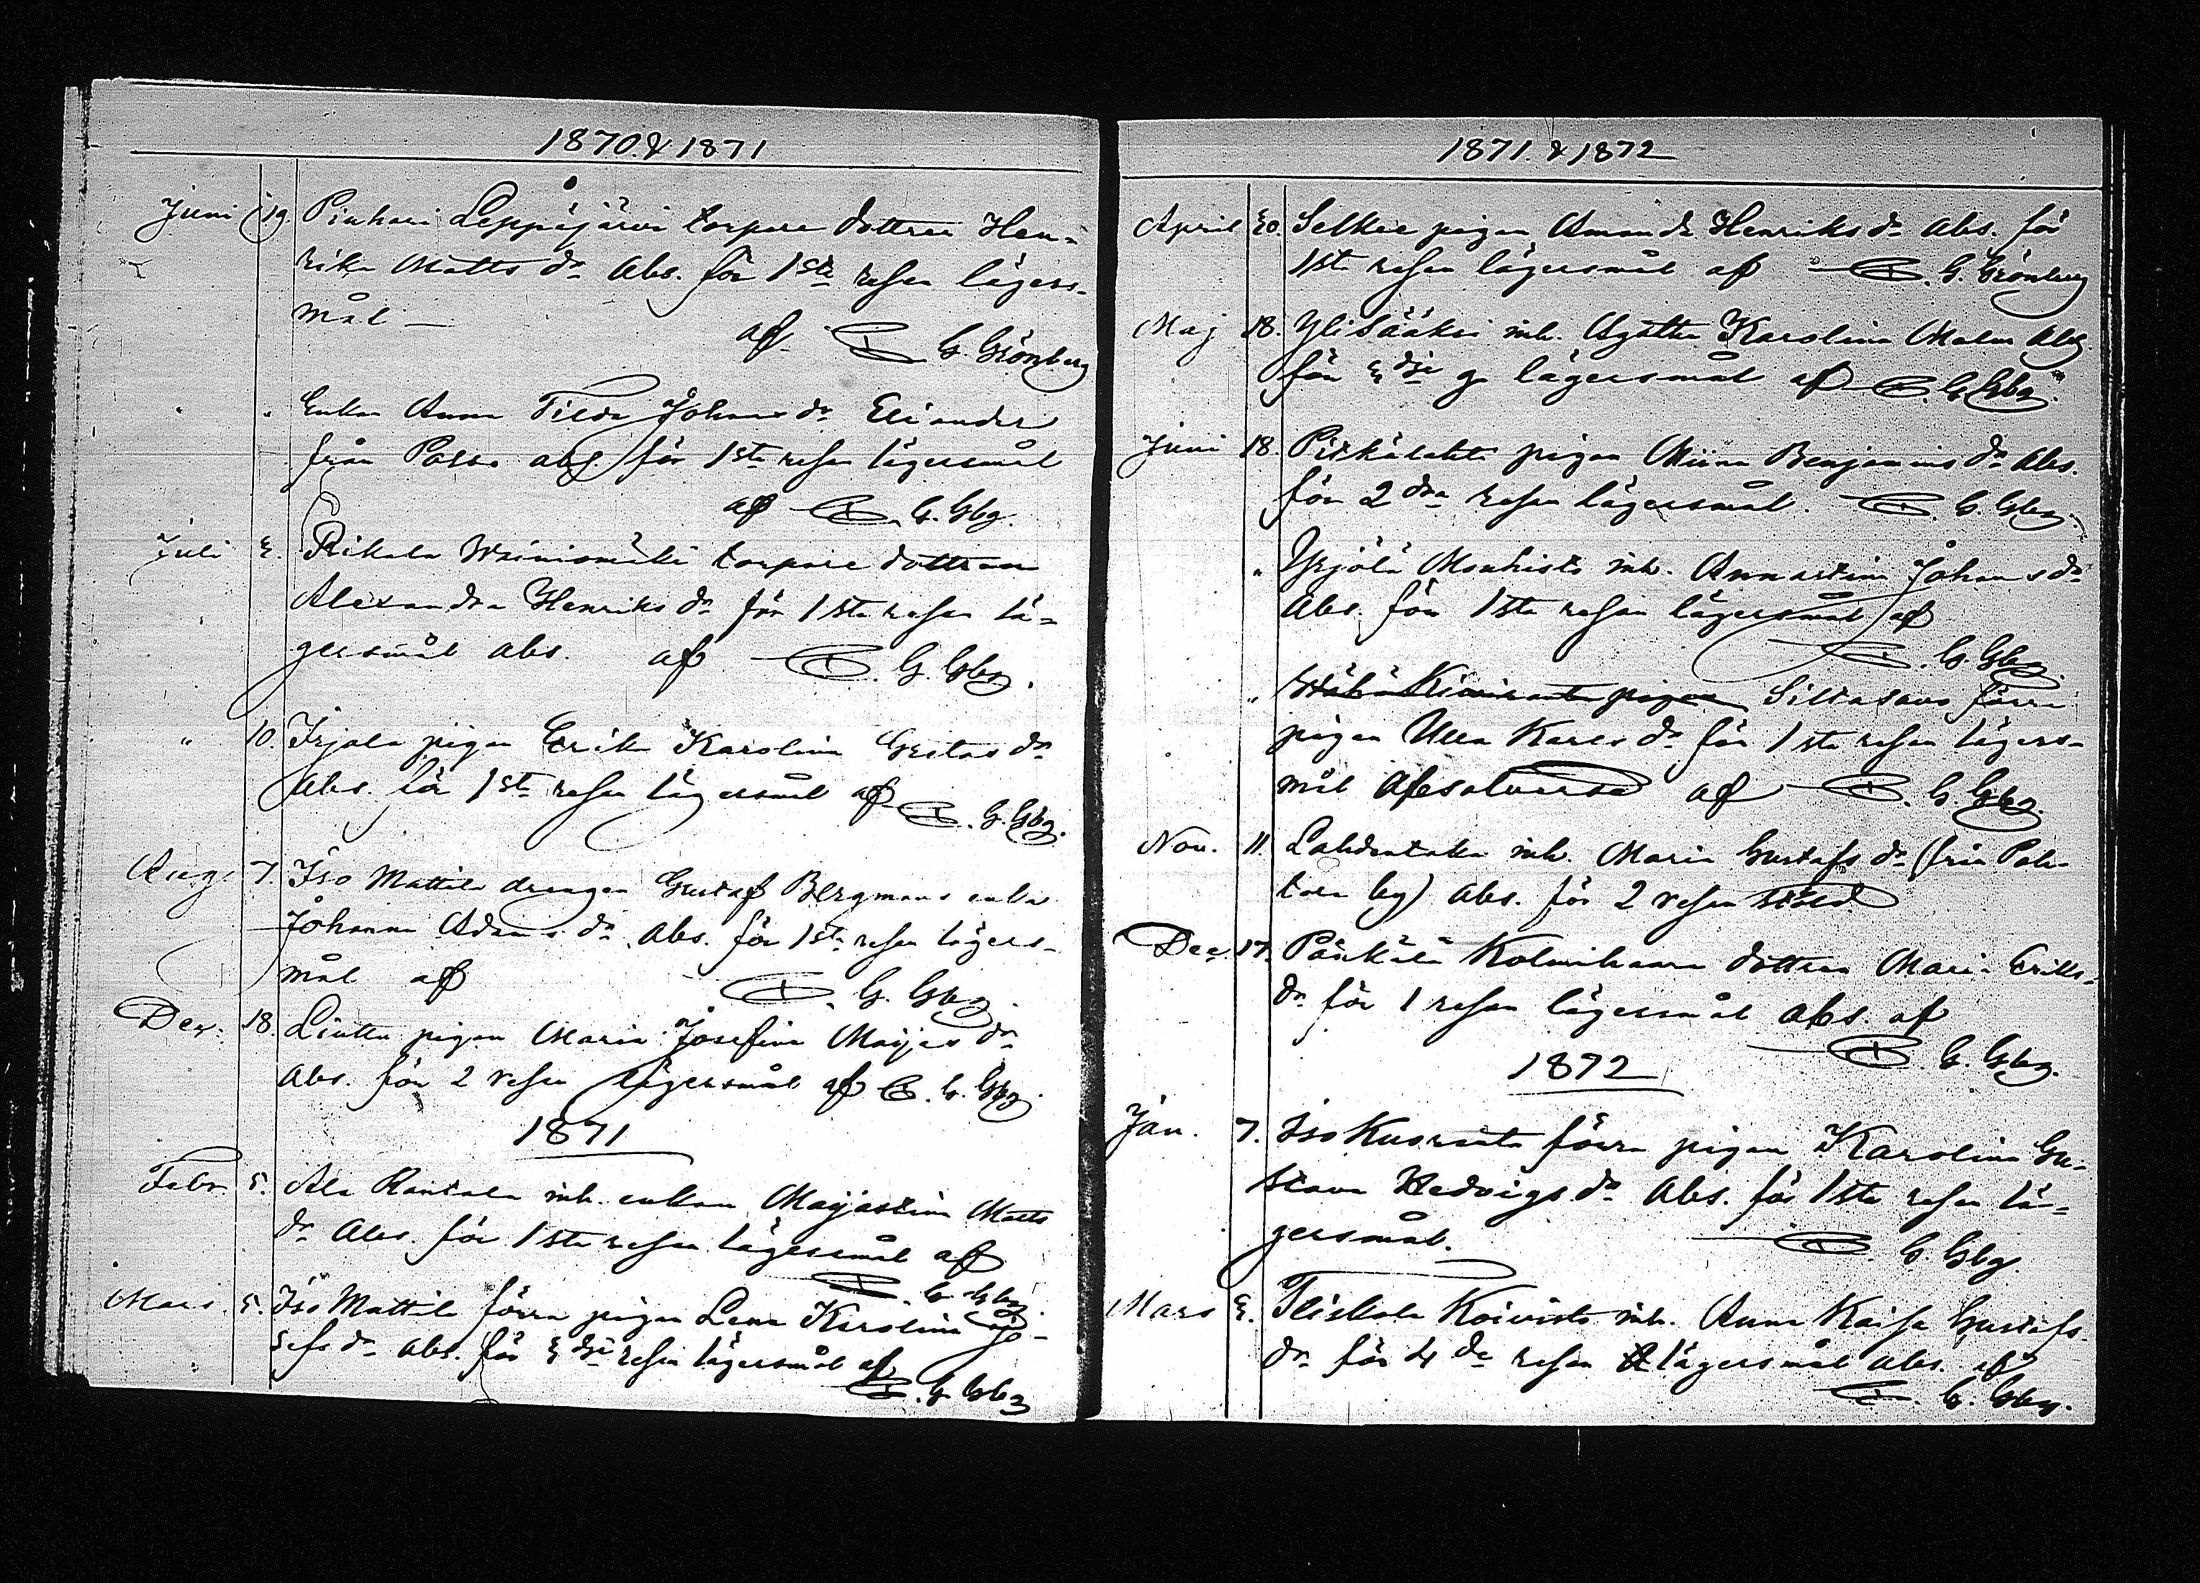 1870. & 1871
Juni 19. Pinhari Leppäjärvi torpare dottren Hen-
rika Matts dr Abs. för 1sta resan lägers-
mål —
af C. G. Grönberg
" " Enkan Anna Tilda Johans dr Eliander
från Paxso abs. för 1sta resan lägersmål
af C. G. Gbg.
Juli 3. Rikala Wainiomäki torpare dottren
Alexandra Henriks dr för 1sta resan lä-
gersmål abs. af C. G. Gbg.
" 10. Irjala pigan Erika Karolina Gretas dr
Abs. för 1sta resan lägersmål af C. G. Gbg.
Aug. 7. Iso Mattila drengen Gustaf Bergmans enka
Johanna Adams dr Abs. för 1sta resan lägers-
mål af C. G. Gbg.
Dec. 18. Liuttu pigan Maria Josefina Maijas dr
Abs. för 2 resan lägersmål af C. G. Gbg.
1871
Febr. 5. Ala Rantala inh. enkan Maijastina Matts
dr Abs. för 1sta resan lägersmål af
C. G. Gbg.
Mars. 5. Iso Mattila förra pigan Lena Karolina Jo-
sefs dr Abs. för 3dje resan lägersmål af
C. G. Gbg
1871. & 1872
April 30. Selkee pigan Amanda Henriks dr Abs. för
1sta resan lägersmål af C. G. Grönberg
Maj 18. Yli Sääksi inh. Agatha Karolina Malm Abs.
för 3dje g. lägersmål af C. G. Gbg.
Juni 18. Pigan Miina Benjamins dr Abs.
för 2dra resan lägersmål. C. G. Gbg.
" Yrjölä Monhisto inh. Annastina Johans dr
Abs. för 1sta resan lägersmål af
C. G. Gbg.
" pigan Siltasavo förra
pigan Ulla Karls dr för 1sta resan lägers-
mål Absolverad af C. G. Gbg.
Nov. 11. Lahdentaka inh. Maria Gustafs dr (från Poh-
toen by) Abs. för 2 resan stöld
Dec. 17. Pänkälä Kolmihaara dottren Maria Eriks-
dr för 1 resan lägersmål Abs. af
C. G. Gbg.
1872
Jan. 7. Iso Kuorsata förra pigan Karolina Gu-
stava Hedvigs dr Abs. för 1sta resan lä-
gersmål. C. G. Gbg
Mars 3. Yliskala Koivisto inh. Anna Kaisa Gustafs
dr för 4de resan lägersmål abs. af
C. G. Gbg.